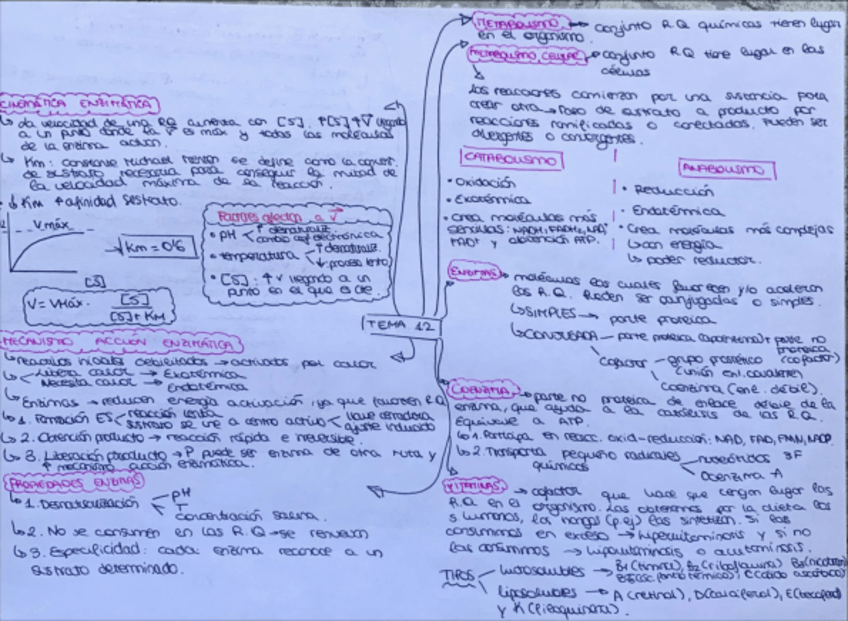 METABOLISMO → conjunto R.Q químicas tienen lugar
en el organismo.
METABOLISMO CELULAR → conjunto R.Q tiene lugar en las
células
Las reacciones comienzan por una sustancia para
crear otra → Paso de sustrato a producto por
reacciones ramificadas o conectadas. Pueden ser
divergentes o convergentes.
CATABOLISMO
• Oxidación
• Exotérmica
• Crea moléculas más
sencillas: NADH, FADH2, NAD+
FAD+ y obtención ATP.
ANABOLISMO
• Reducción
• Endotérmica
• Crea moléculas más complejas
↳ con energía
↳ poder reductor.
ENZIMAS → moléculas las cuales favorecen y/o aceleran
las R.Q. Pueden ser conjugadas o simples.
↳ SIMPLES → parte proteica
↳ CONJUGADA → parte proteica (apoenzima) + parte no
proteica
(cofactor)
Cofactor → grupo prostético
(unión enl. covalente)
Coenzima (enl. débil).
COENZIMA → parte no proteica de enlace débil de la
enzima, que ayuda a la catálisis de las R.Q.
Equivale a ATP.
↳ 1. Participa en reacc. oxid-reducción: NAD, FAD, FMN, NADP.
↳ 2. Transporta pequeño radicales
químicos
nucleótidos 3F
Coenzima-A
VITAMINAS → cofactor que hace que tengan lugar las
R.Q. en el organismo. Las obtenemos por la dieta los
humanos, los hongos (p.ej) las sintetizan. Si las
consumimos en exceso → hipervitaminosis y si no
las consumimos → hipovitaminosis o avitaminosis.
TIPOS
hidrosolubles → B1 (tiamina), B2 (riboflavina)
C (ácido ascórbico)
Liposolubles → A (retinol), D (calciferol), E (tocoferol)
y K (filoquinona).
TEMA 12
CINEMÁTICA ENZIMÁTICA
↳ La velocidad de una RQ aumenta con [S]. ↑[S] ↑V llegando
a un punto donde la V es máx y todas las moléculas
de la enzima actúan.
↳ Km: constante Michael Menten se define como la concent.
de sustrato necesaria para conseguir la mitad de
la velocidad máxima de la reacción.
↓ Km ↑ afinidad sustrato.
Vmáx
[S]
Km = 0'6
V = Vmáx. [S]
[S] + KM
Factores afectan a V
• PH
↑ desnaturaliz.
• temperatura
↑ desnaturaliz.
↓ proceso lento
• [S]: ↑V llegando a un
punto en el que es cte.
MECANISMO ACCIÓN ENZIMÁTICA
↳ reactivos iniciales debilitados → activados por calor
Libera calor → Exotérmica
Necesita calor → Endotérmica
↳ Enzimas → reducen energía activación, ya que favorecen R.Q
↳ 1. Formación ES
reacción lenta
sustrato se une a centro activo
llave cerradura
ajuste inducido
↳ 2. Obtención producto → reacción rápida e irreversible.
↳ 3. Liberación producto → P puede ser enzima de otra ruta y
↑ mecanismo acción enzimática.
PROPIEDADES ENZIMAS
↳ 1. Desnaturalización
PH
T
concentración salina.
↳ 2. No se consumen en las R.Q → se renuevan
↳ 3. Especificidad: cada enzima reconoce a un
sustrato determinado.